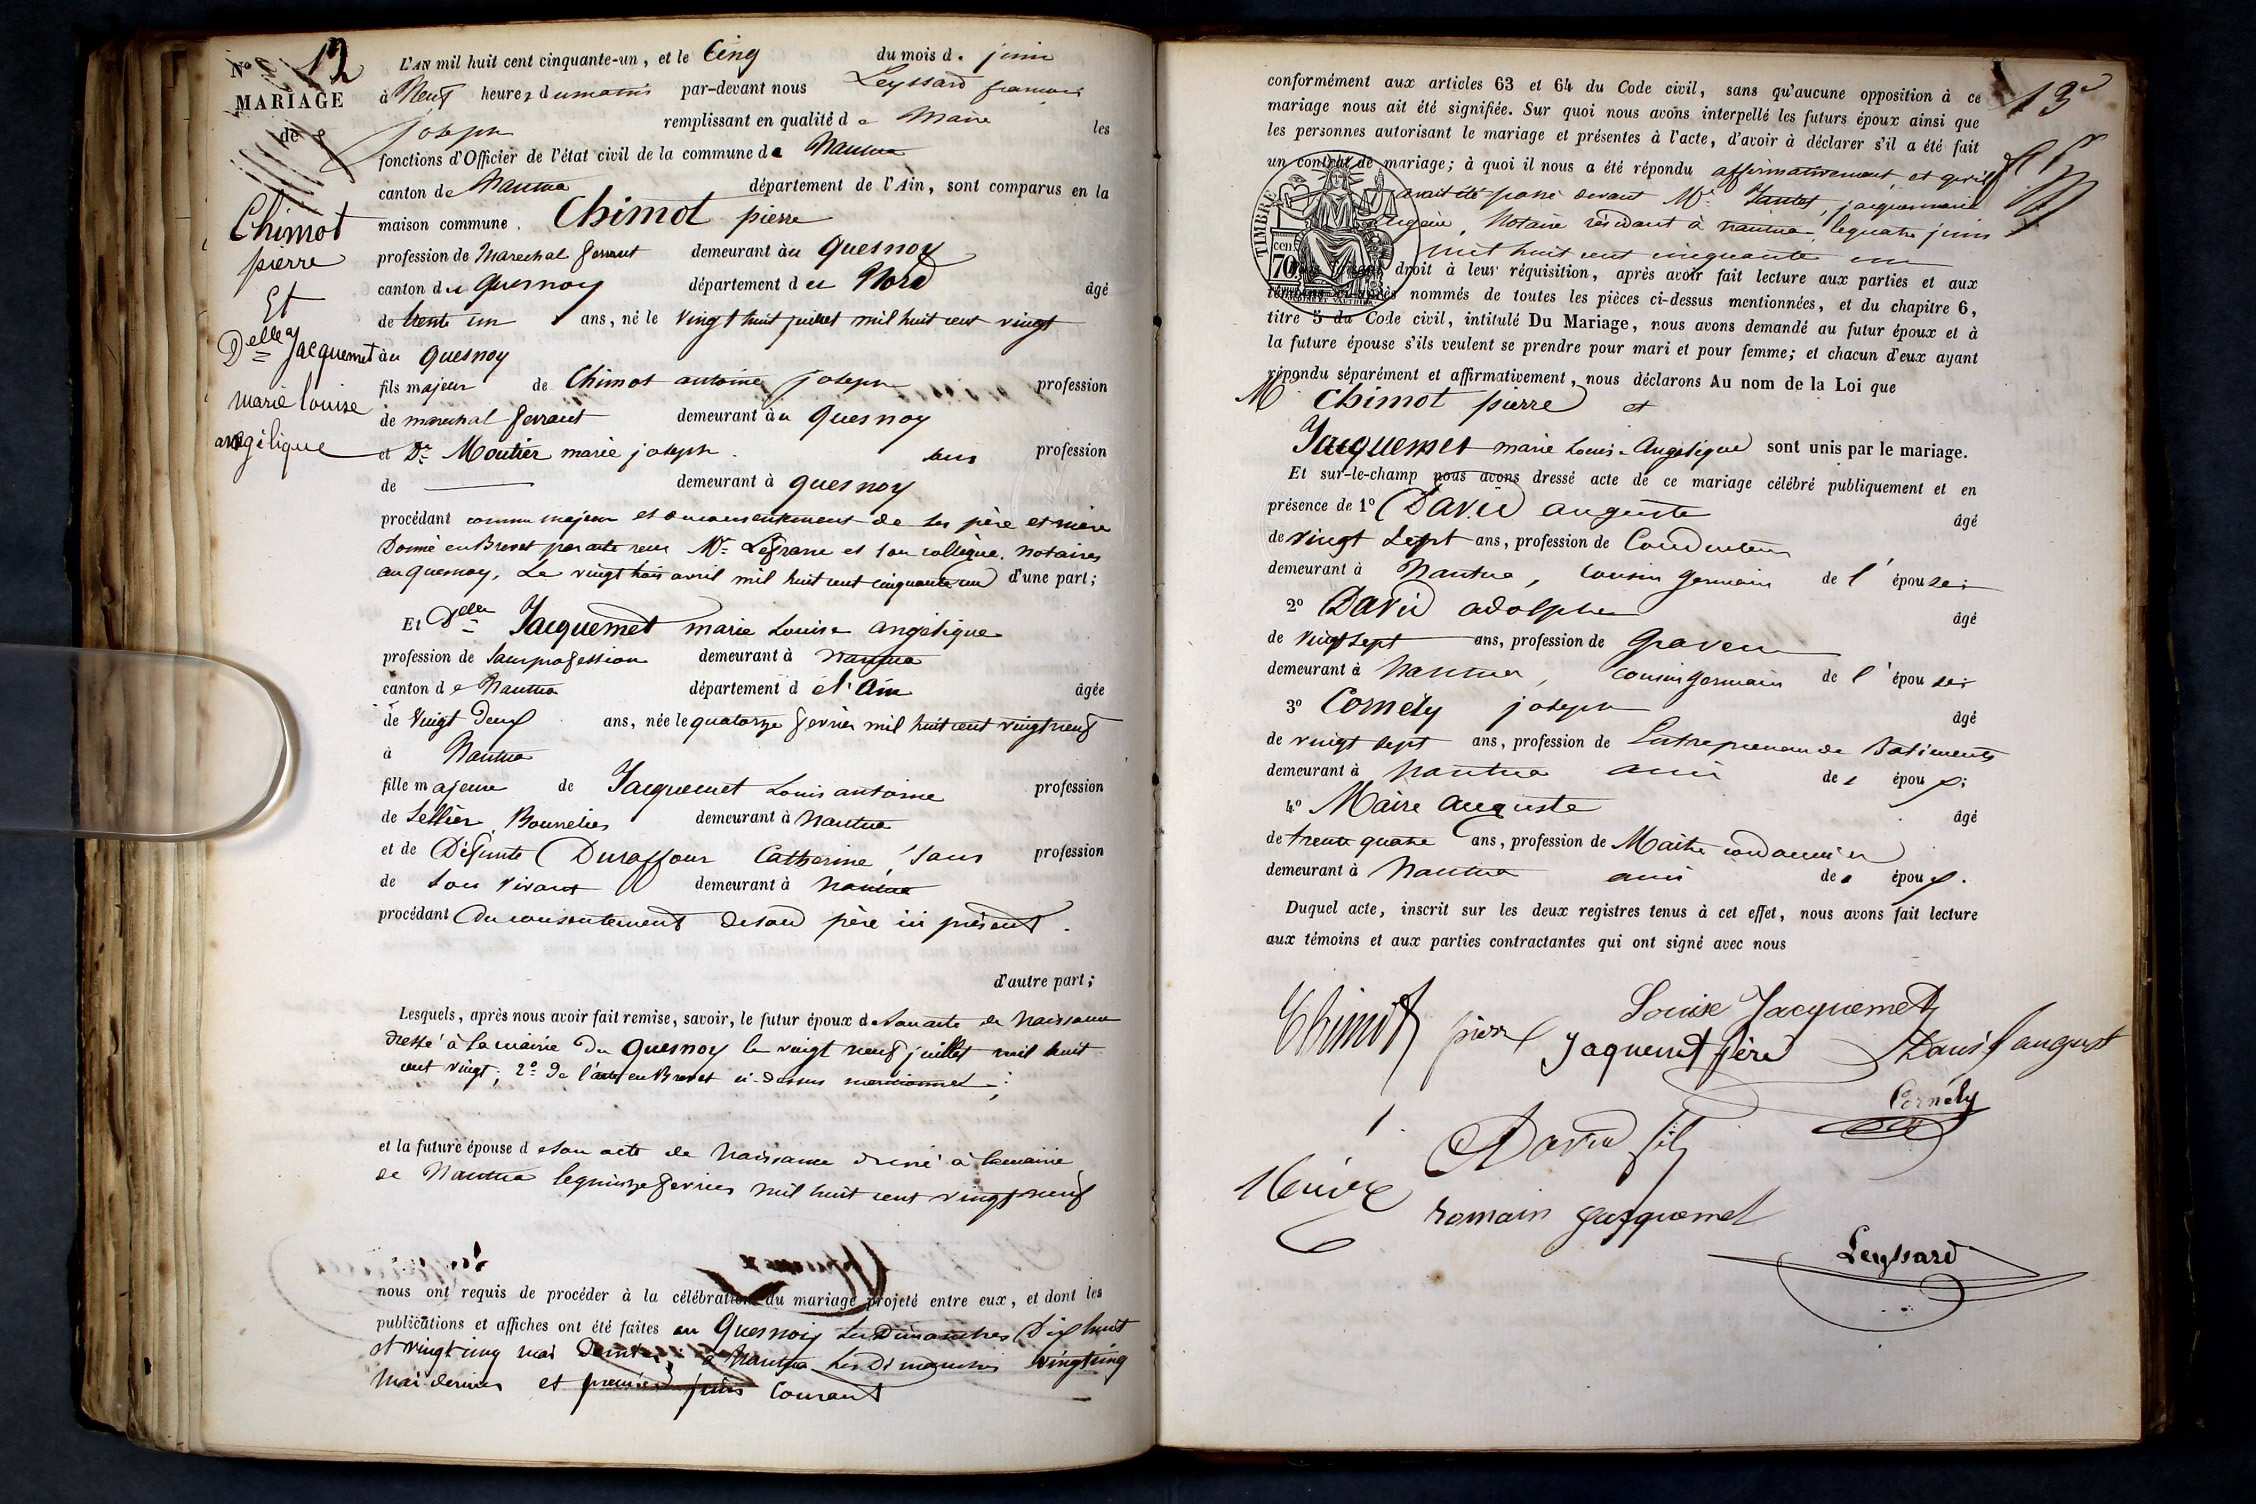 No 12
MARIAGE
de
Chimot
pierre
Et
Delle Jacquemet
marie louise
angélique
L'AN mil huit cent cinquante-un, et le Cinq du mois de juin
à Neuf heures du matin par-devant nous Leyssard françois
joseph remplissant en qualité de Maire les
fonctions d'Officier de l'état civil de la commune de Nantua
canton de Nantua département de l'Ain, sont comparus en la
maison commune. Chimot pierre
profession de Marechal ferrant demeurant au Quesnoy
canton du Quesnoy département du Nord âgé
de trente un ans, né le vingt huit juillet mil huit cent vingt
au Quesnoy
fils majeur de Chimot antoine joseph profession
de marechal ferrant demeurant au Quesnoy
et De Moutier marie joseph sans profession
de demeurant à Quesnoy
procédant comme majeur et du consentement de ses père et mère
Donné en Brevet par acte reçu Me et son collègue, notaires
au Quesnoy, Le vingt trois avril mil huit cent cinquante un d'une part;
Et Delle Jacquemet marie Louise angélique
profession de Sans profession demeurant à Nantua
canton de Nantua département de l'Ain âgée
de vingt Deux ans, née le quatorze fevrier mil huit cent vingt neuf
à Nantua
fille majeure de Jacquemet Louis antoine profession
de Sellier Bourrelier demeurant à Nantua
et de Défunte Duraffour Catherine, Sans profession
de son vivant demeurant à Nantua
procédant du consentement de son père ici présent.
d'autre part;
Lesquels, après nous avoir fait remise, savoir, le futur époux de son acte de Naissance
dressé à la mairie du Quesnoy le vingt neuf juillet mil huit
cent vingt; 2o De l'acte en Brevet ci-dessus mentionné;
et la future épouse de son acte de Naissance dressé à la mairie
de Nantua le quinze fevrier mil huit cent vingt neuf
nous ont requis de procéder à la célébration du mariage projeté entre eux, et dont les
publications et affiches ont été faites au Quesnoy les Dimanches Dix huit
et vingt cinq mai Dernier, à Nantua les Dimanches vingt cinq
Mai dernier et premier juin Courant
13e
conformément aux articles 63 et 64 du Code civil, sans qu'aucune opposition à ce
mariage nous ait été signifiée. Sur quoi nous avons interpellé les futurs époux ainsi que
les personnes autorisant le mariage et présentes à l'acte, d'avoir à déclarer s'il a été fait
un contrat de mariage; à quoi il nous a été répondu affirmativement, et qu'il
avait été passé devant Me jacquemarie
Notaire résidant à Nantua, le quatre juin
mil huit cent cinquante un
TIMBRE
cen
70
droit à leur réquisition, après avoir fait lecture aux parties et aux
témoins ci-après nommés de toutes les pièces ci-dessus mentionnées, et du chapitre 6,
titre 5 du Code civil, intitulé Du Mariage, nous avons demandé au futur époux et à
la future épouse s'ils veulent se prendre pour mari et pour femme; et chacun d'eux ayant
répondu séparément et affirmativement, nous déclarons Au nom de la Loi que
Mr Chimot pierre et
Jacquemet marie Louise Angélique sont unis par le mariage.
Et sur-le-champ nous avons dressé acte de ce mariage célébré publiquement et en
présence de 1o David auguste âgé
de vingt Sept ans, profession de Conducteur
demeurant à Nantua, cousin germain de l'épouse;
2o David adolphe âgé
de vingt sept ans, profession de Graveur
demeurant à Nantua, cousin germain de l'épouse;
3o Cornély joseph âgé
de vingt sept ans, profession de Entrepreneur de Batiments
demeurant à Nantua ami des époux;
4o Maire Auguste âgé
de trente quatre ans, profession de Maitre cordonnier
demeurant à Nantua ami des époux.
Duquel acte, inscrit sur les deux registres tenus à cet effet, nous avons fait lecture
aux témoins et aux parties contractantes qui ont signé avec nous
Chimot pierre
Louise Jacquemet
Jaquemet père
David august
Cornély
David fils
romain Jacquemet
Leyssard